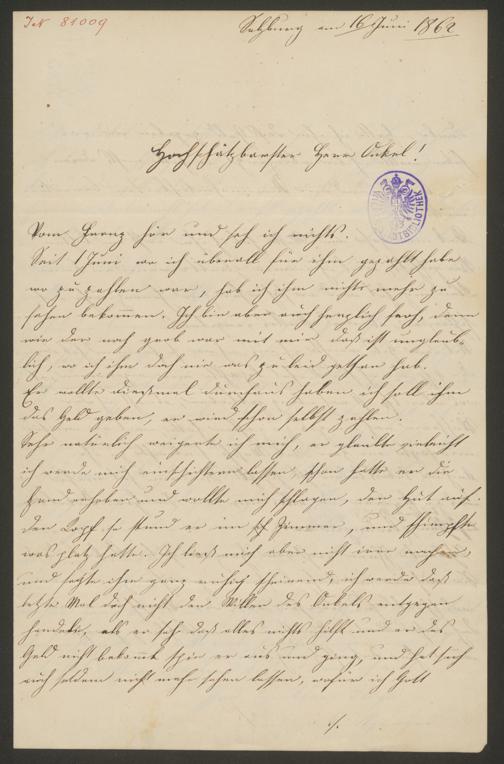 IN 81009
Salzburg am 16 Juni 1862
Hochschätzbarster Herr Onkel!
Vom Franz hör und seh ich nichts.
Seit 1 Juni wo ich überall für ihm gezahlt habe
wo zu zahlen war, hab ich ihm nichts mehr zu
sehen bekommen. Ich bin aber auch herzlich froh, denn
wie der noch grob war mit mir das ist unglaub-
lich, wo ich ihm doch nie was zu leid gethan hab.
Er wollte diesmal durchaus haben ich soll ihm
das Geld geben, er wird schon selbst zahlen.
Sehr natürlich weigerte ich mich, er glaubte vieleicht
ich werde mich einschüchtern lassen, schon hatte er die
Hand erhoben und wollte mich schlagen, den Hut auf
den Kopf so stund er im Zimmer, und schimpfte
was platz hatte. Ich ließ mich aber nicht irre machen,
und sagte ihm ganz ruhig scheinend, ich werde das
letzte Mal doch nicht den Willen des Onkels entgegen
handeln, als er sah daß alles nichts hilft und er das
Geld nicht bekommt spie er aus und ging, und hat sich
auch seitdem nicht mehr sehen lassen, wofür ich Gott
./.